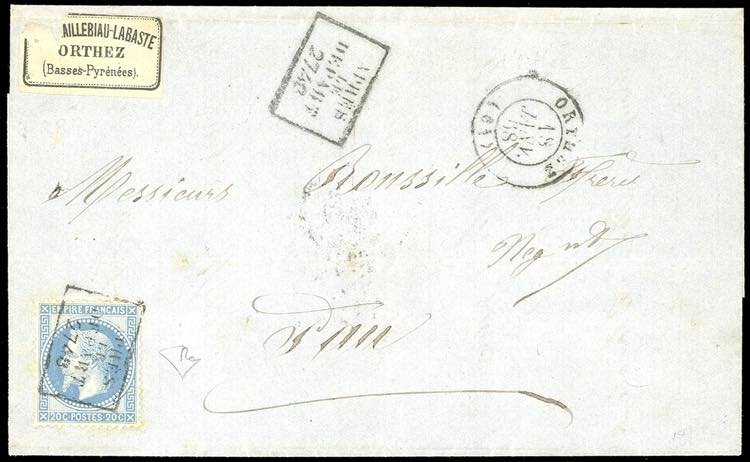 AILLEBIAU-LABASTE
ORTHEZ
(Basses-Pyrénées).
APRÈS
LE
DEPART
2742
ORTHEZ
18
JANV.
68
(64)
Messieurs Roussille Frères
Negnts
Pau
EMPIRE FRANÇAIS
LE
PART
20C POSTES 20C